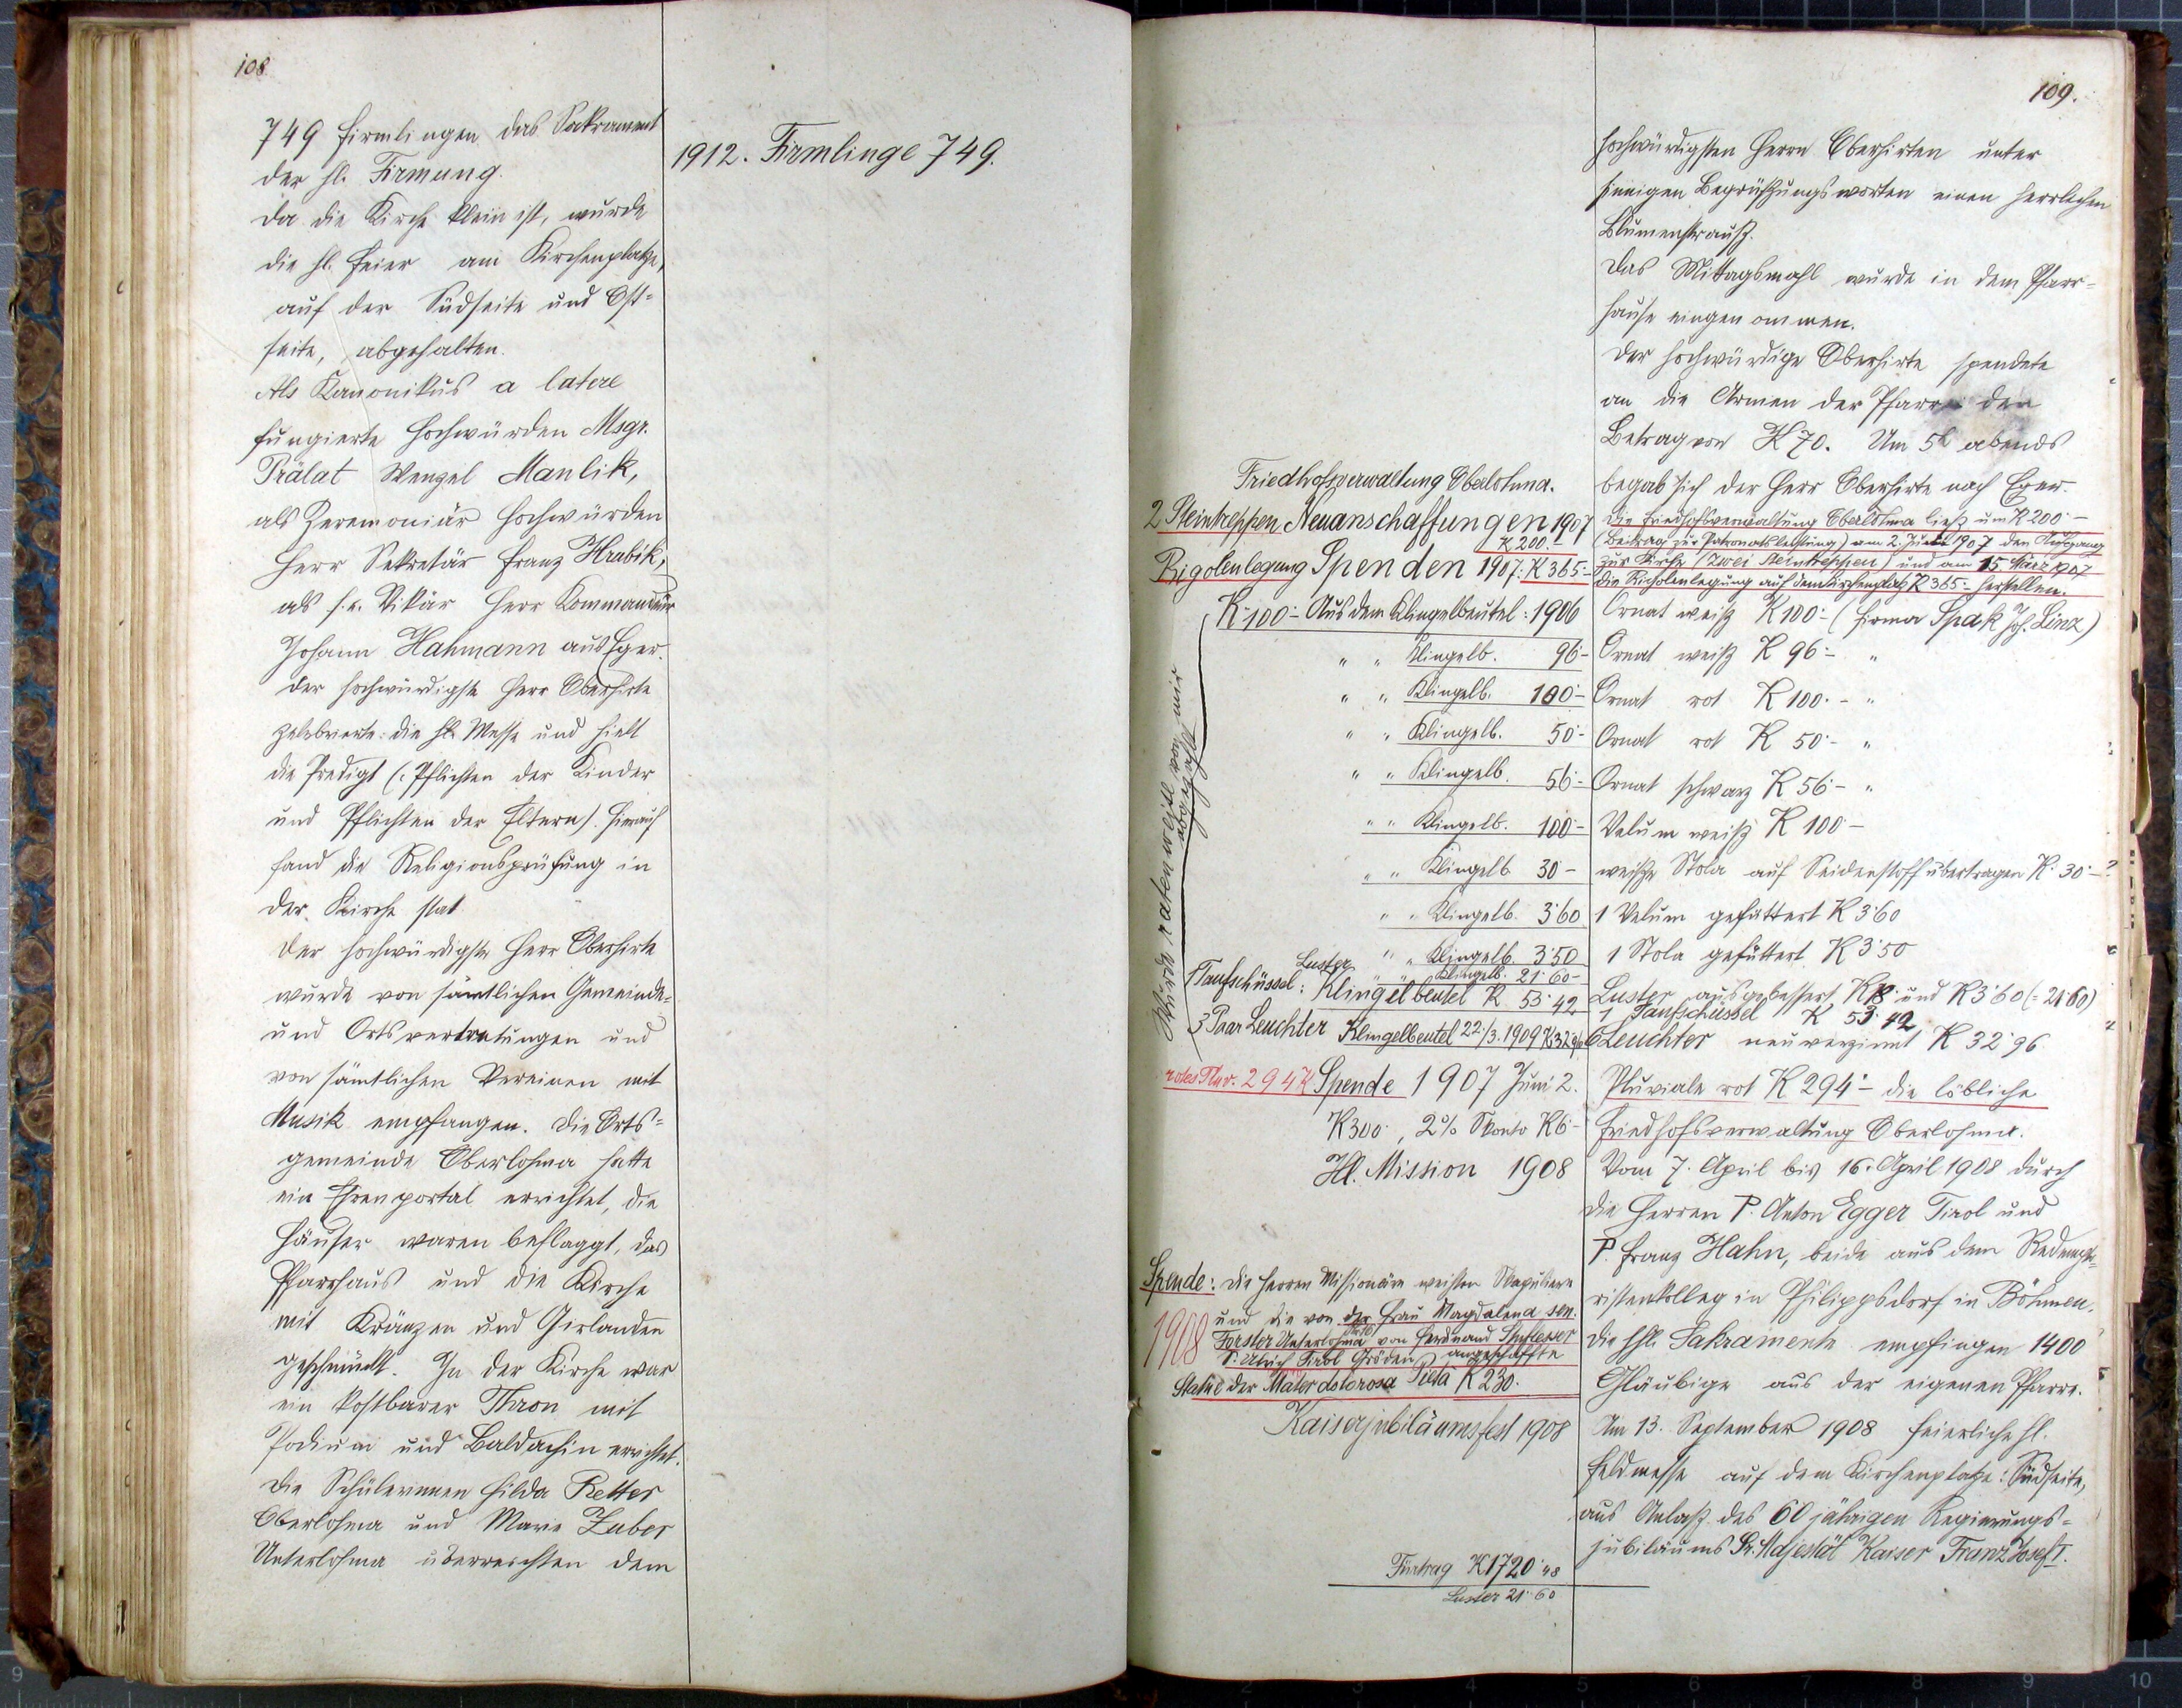 108
749 Firmlingen das Sakrament
der hl. Firmung.
Da die Kirche klein ist, wurde
die hl. Feier am Kirchenplatze,
auf der Südseite und Ost=
seite, abgehalten.
Als Kanonikus a latere
fungierte Hochwürden Msgr.
Prälat Wenzel Manlik,
als Zeremoniär Hochwürden
Herr Sekretär Franz Hrabik,
als Vikär Herr Kommandeur
Johann Hahmann aus Eger.
Der hochwürdigste Herr Oberhirte
zelebrierte die hl. Messe und hielt
die Predigt (: Pflichten der Kinder
und Pflichten der Eltern). Hierauf
fand die Religionsprüfung in
der Kirche stat.
Der hochwürdigste Herr Oberhirte
wurde von sämtlichen Gemeinde=
und Ortsvertretungen und
von sämtlichen Vereinen mit
Musik empfangen. Die Orts=
gemeinde Oberlohma hatte
ein Ehrenportal errichtet, die
Häuser waren beflaggt, das
Pfarrhaus und die Kirche
mit Kränzen und Girlanden
geschmückt. In der Kirche war
ein kostbarer Thron mit
Podium und Baldachin errichtet.
Die Schülerinnen Hilda Retter
Oberlohma und Marie Zuber
Unterlohma überreichten dem
1912. Firmlinge 749.
109.
hochwürdigsten Herrn Oberhirten unter
sinnigen Begrüßungsworten einen herrlichen
Blumenstrauß.
Das Mittagsmahl wurde in dem Pfarr=
hause eingenommen.
Der hochwürdige Oberhirte spendete
an die Armen der Pfarrei den
Betrag von K 70. Um 5h abends
begab sich der Herr Oberhirte nach Eger.
Friedhofsverwaltung Oberlohma.
2 Steintreppen Neuanschaffungen 1907
K 200.-
Die Friedhofsverwaltung Oberlohma ließ um K 200·-
(Beitrag zur Patronatsleistung) am 2. Juni 1907 den Aufgang
zur Kirche (zwei Steintreppen) und am 15. März 1907
Rigolenlegung Spenden 1907: K 365·-
die Rigolenlegung auf dem Kirchenplatz K 365·- herstellen.
K 100·- Aus dem Klingelbeutel: 1906
Ornat weiß K 100·- (Firma Spak Joh. Linz)
" " Klingelb. 96·-
Ornat weiß K 96·- "
" " Klingelb. 100·-
Ornat rot K 100·- "
" " Klingelb. 50·-
Ornat rot K 50·- "
" " Klingelb. 56·-
Ornat schwarz K 56·- "
" " Klingelb. 100·-
Velum weiß K 100·-
" " Klingelb 30-
weiße Stola auf Seidenstoff übertragen K. 30·-
" " Klingelb. 3·60
1 Velum gefüttert K 3·60
" " Klingelb. 3·50
1 Stola gefüttert K 3·50
Luster " " Klingelb. 21·60-
Luster ausgebessert K 18· und K 3·60 (= 21·60)
1 Taufschüssel: Klingelbeutel K 53·42
1 Taufschüssel K 53·42
3 Paar Leuchter Klingelbeutel 22./3. 1909 K 32·96
6 Leuchter neu verzinnt K 32·96
Wurde ratenweise von mir
abgezahlt
rotes Pluv. 294 K Spende 1907 Juni 2.
K 300·, 2% Skonto K 6·-
Pluviale rot K 294·- die löbliche
Friedhofsverwaltung Oberlohma.
Hl. Mission 1908
Vom 7. April bis 16. April 1908 durch
die Herren P. Anton Egger Tirol und
P. Franz Hahn, beide aus dem Redempto=
ristenkolleg in Philippsdorf in Böhmen.
Die hhl. Sakramente empfingen 1400
Gläubige aus der eigenen Pfarre.
Spende: Die Herren Missionäre weihten Skapuliere
1908
und die von der Frau Magdalena sen.
Forster Unterlohma von Ferdinand Stuflesser
St. Ulrich Tirol Gröden angeschaffte
Statue der Mater dolorosa Pieta K 230.
Kaiserjubiläumsfest 1908
Am 13. September 1908 feierliche hl.
Feldmesse auf dem Kirchenplatze: Südseite,
aus Anlaß des 60 jährigen Regierungs=
jubiläums Sr. Majestät Kaiser Franz Josef I.
Fürtrag K 1720·48
Luster 21·60